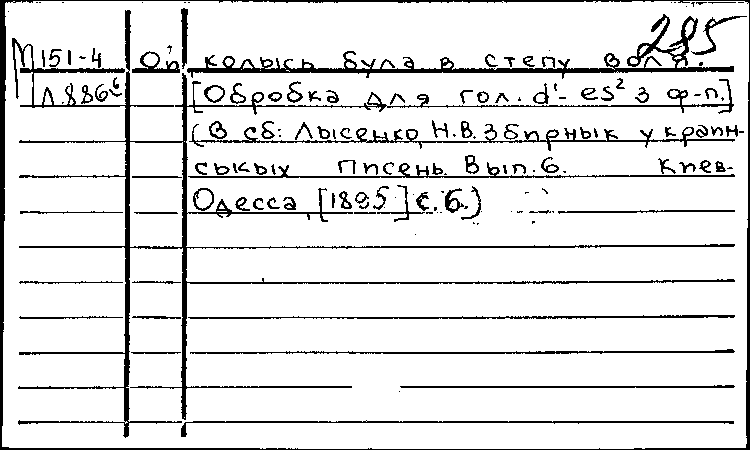 285
М 151-4 Ой колысь була в степу воля.
Л.886 [Обробка для гол. d¹- es² з ф-п.]
(В сб: Лысенко, Н.В. Збирнык украин-
ськых писень. Вып. 6. Киев-
Одесса, [1895] с. 6.)